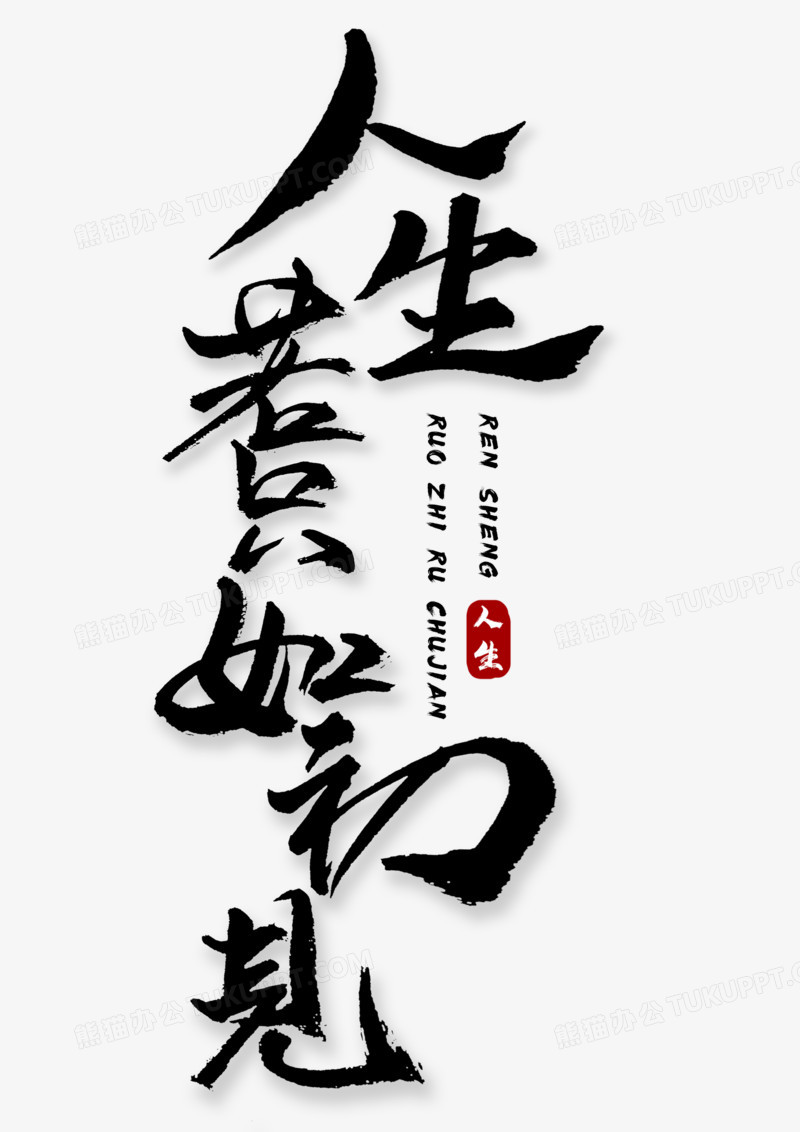 人生若只如初見
REN SHENG
人生
RUO ZHI RU CHUJIAN
熊猫办公 TUKUPPT.COM
熊猫办公 TUKUPPT.COM
熊猫办公 TUKUPPT.COM
熊猫办公 TUKUPPT.COM
熊猫办公 TUKUPPT.COM
熊猫办公 TUKUPPT.COM